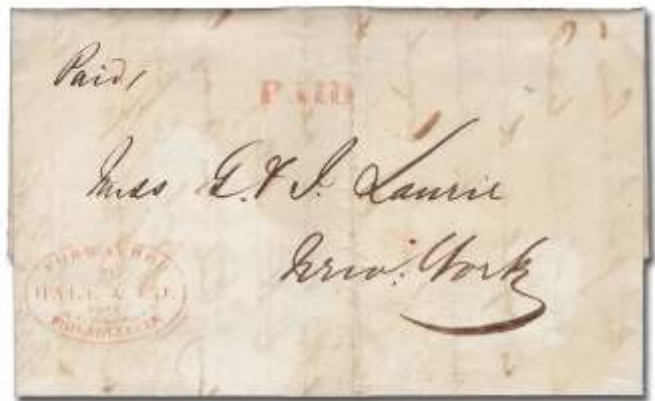 Paid,
PAID
Mess G. & J. Laurie
New York
FORWARDED
BY
HALE & CO.
PHILADELPHIA